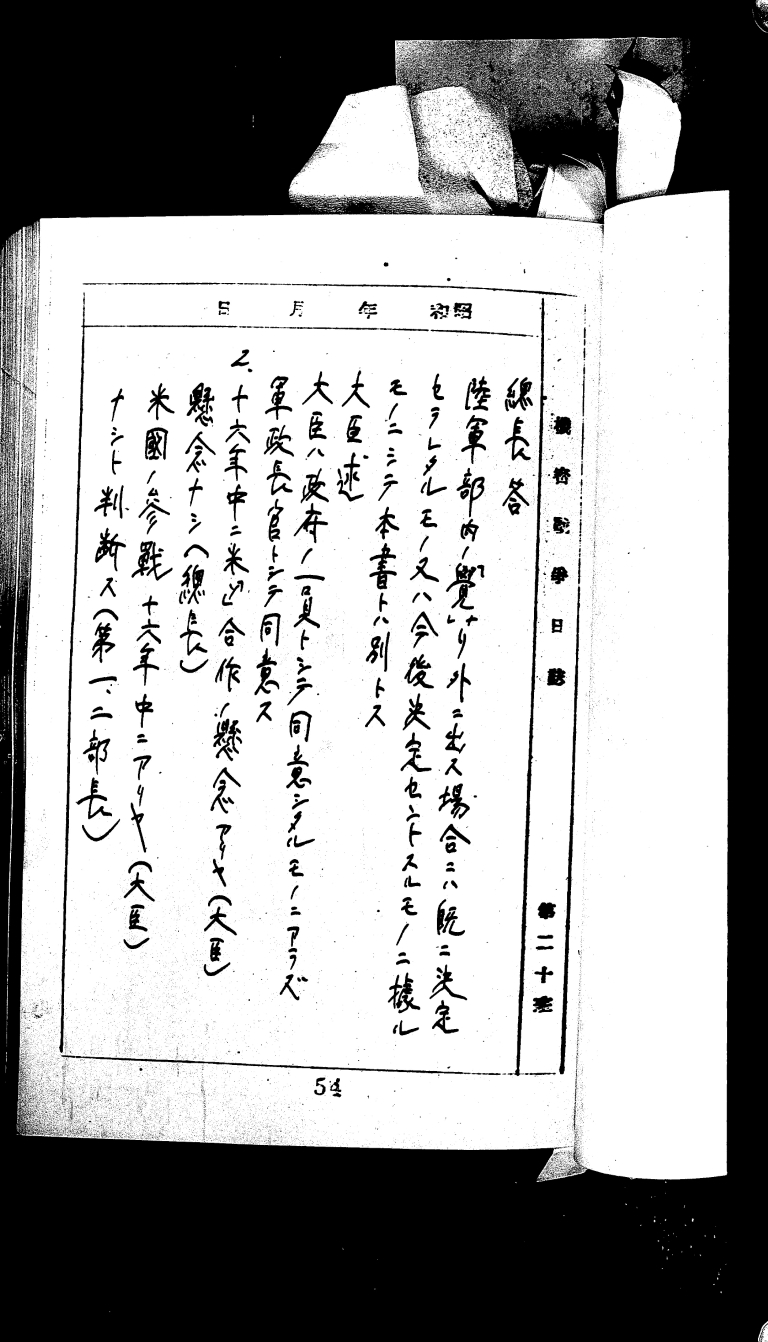 機密戰爭日誌 第二十巻
昭和 年 月 日
總長答
陸軍部内ノ覺ナリ外ニ出ス場合ニハ既ニ決定
セラレタルモノ又ハ今後決定セントスルモノニ據ル
モノニシテ本書トハ別トス
大臣述
大臣ハ政府ノ一員トシテ同意シタルモノニアラズ
軍政長官トシテ同意ス
2.十六年中ニ米ソ合作ノ懸念アリヤ(大臣)
懸念ナシ(總長)
米國ノ參戰十六年中ニアリヤ(大臣)
ナシト判断ス(第一、二部長)
54